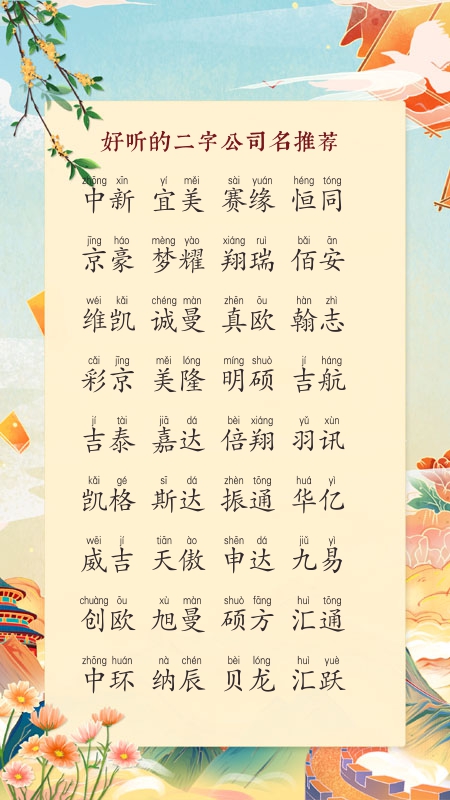 好听的二字公司名推荐
zhōng xīn yí měi sài yuán héng tóng
中新 宜美 赛缘 恒同
jīng háo mèng yào xiáng ruì bǎi ān
京豪 梦耀 翔瑞 佰安
wéi kǎi chéng màn zhēn ōu hàn zhì
维凯 诚曼 真欧 翰志
cǎi jīng měi lóng míng shuò jí háng
彩京 美隆 明硕 吉航
jí tài jiā dá bèi xiáng yǔ xùn
吉泰 嘉达 倍翔 羽讯
kǎi gé sī dá zhèn tōng huá yì
凯格 斯达 振通 华亿
wēi jí tiān ào shēn dá jiǔ yì
威吉 天傲 申达 九易
chuàng ōu xù màn shuò fāng huì tōng
创欧 旭曼 硕方 汇通
zhōng huán nà chén bèi lóng huì yuè
中环 纳辰 贝龙 汇跃